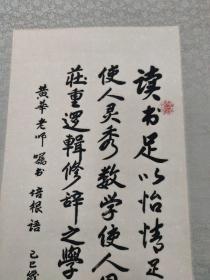 读书足以怡情足
使人灵秀数学使人周
莊重逻辑修辞之學
黄華老师嘱书 培根语 己巳